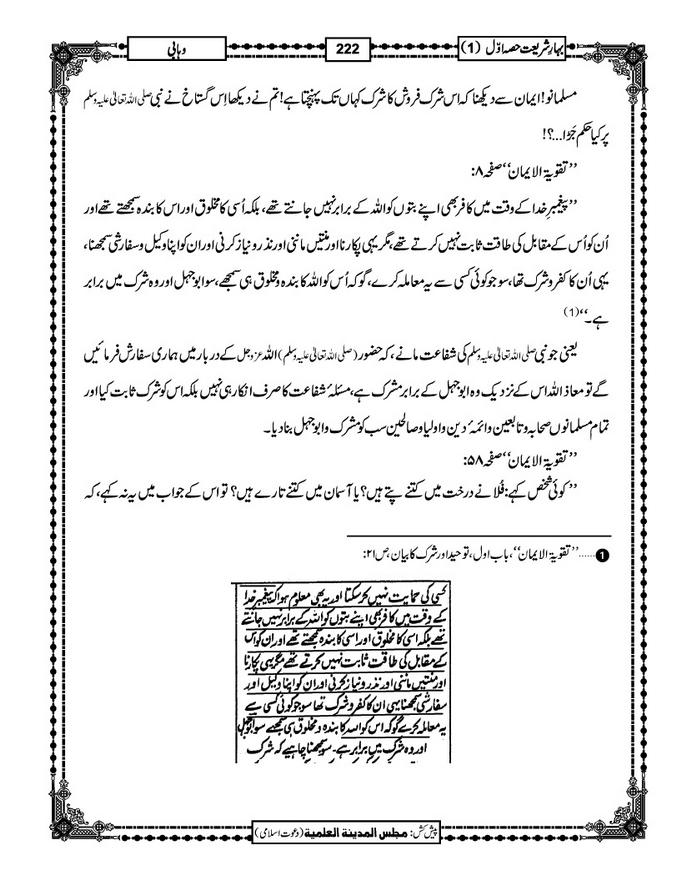 بہارِشریعت حصہ اوّل (1)
222
وہابی
مسلمانو! ایمان سے دیکھنا کہ اس شرک فروش کا شرک کہاں تک پہنچتا ہے! تم نے دیکھا اِس گستاخ نے نبی صلی اللہ تعالیٰ علیہ وسلم
پر کیا حکم جَڑا...؟!
’’تقویۃ الایمان‘‘ صفحہ ۸:
’’پیغمبرِ خدا کے وقت میں کافر بھی اپنے بتوں کو اللہ کے برابر نہیں جانتے تھے، بلکہ اُسی کا مخلوق اور اس کا بندہ سمجھتے تھے اور
اُن کو اُس کے مقابل کی طاقت ثابت نہیں کرتے تھے، مگر یہی پکارنا اور منتیں ماننی اور نذر و نیاز کرنی اور ان کو اپنا وکیل و سفارشی سمجھنا،
یہی اُن کا کفر و شرک تھا، سو جو کوئی کسی سے یہ معاملہ کرے، گو کہ اُس کو اللہ کا بندہ و مخلوق ہی سمجھے، سو ابوجہل اور وہ شرک میں برابر
ہے۔‘‘ (1)
یعنی جو نبی صلی اللہ تعالیٰ علیہ وسلم کی شفاعت مانے، کہ حضور (صلی اللہ تعالیٰ علیہ وسلم) اللہ عزوجل کے دربار میں ہماری سفارش فرمائیں
گے تو معاذ اللہ اس کے نزدیک وہ ابوجہل کے برابر مشرک ہے، مسئلۂ شفاعت کا صرف انکار ہی نہیں بلکہ اس کو شرک ثابت کیا اور
تمام مسلمانوں صحابہ و تابعین و ائمۂ دین و اولیا و صالحین سب کو مشرک و ابوجہل بنا دیا۔
’’تقویۃ الایمان‘‘ صفحہ ۵۸:
’’کوئی شخص کہے: فُلانے درخت میں کتنے پتے ہیں؟ یا آسمان میں کتنے تارے ہیں؟ تو اس کے جواب میں یہ نہ کہے، کہ
1 ......’’تقویۃ الایمان‘‘، باب اول، توحید اور شرک کا بیان، ص۲۱:
کسی کی حمایت نہیں کر سکتا اور یہ بھی معلوم ہوا کہ پیغمبر خدا
کے وقت میں کافر بھی اپنے بتوں کو اللہ کے برابر نہیں جانتے
تھے بلکہ اسی کا مخلوق اور اسی کا بندہ سمجھتے تھے اور ان کو اس
کے مقابل کی طاقت ثابت نہیں کرتے تھے مگر یہی پکارنا
اور منتیں ماننی اور نذر و نیاز کرنی اور ان کو اپنا وکیل اور
سفارشی سمجھنا یہی ان کا کفر و شرک تھا سو جو کوئی کسی سے
یہ معاملہ کرے گو کہ اس کو اللہ کا بندہ و مخلوق ہی سمجھے سو ابوجہل
اور وہ شرک میں برابر ہے۔ سو سمجھنا چاہیے کہ شرک
پیش کش: مجلس المدينة العلمية (دعوت اسلامی)